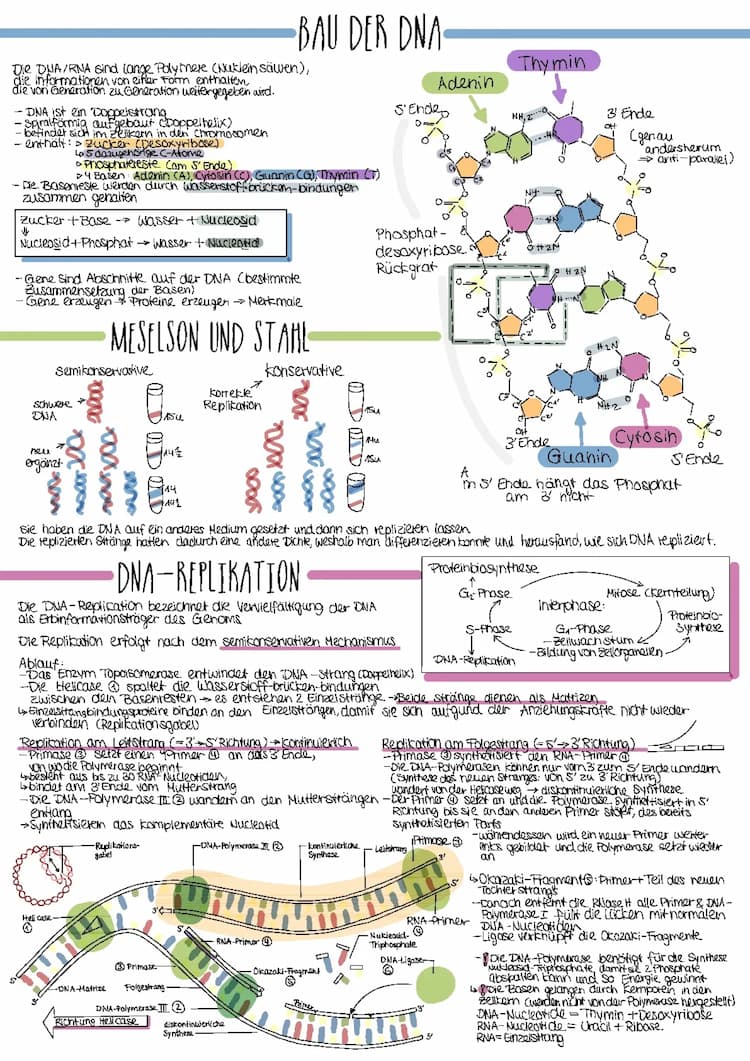 BAU DER DNA
Die DNA/RNA sind lange Polymere (Nukleinsäuren),
die Informationen von einer Form enthalten,
die von Generation zu Generation weitergegeben wird.
- DNA ist ein Doppelstrang
- spiralförmig aufgebaut (Doppelhelix)
- befindet sich im Zellkern in den Chromosomen
- enthält: Zucker (Desoxyribose)
↳ 5 dazugehörige C-Atome
Phosphatreste (am 5' Ende)
4 Basen: Adenin (A), Cytosin (C), Guanin (G), Thymin (T)
- Die Basenreste werden durch Wasserstoff-brücken-bindungen
zusammen gehalten
Zucker + Base → Wasser + Nucleosid
Nucleosid + Phosphat → Wasser + Nucleotid
- Gene sind Abschnitte auf der DNA (bestimmte
Zusammensetzung der Basen)
- Gene erzeugen → Proteine erzeugen → Merkmale
Adenin
Thymin
5' Ende
3' Ende
(genau
andersherum
⇒ anti-parallel)
Phosphat-
desoxyribose
Rückgrat
3' Ende
5' Ende
Guanin
Cytosin
Am 5' Ende hängt das Phosphat
am 3' nicht
MESELSON UND STAHL
semikonservative
konservative
schwere
DNA
korrekte
Replikation
neu
ergänzt
15u
14½
14
14½
15u
14u
15u
Sie haben die DNA auf ein anderes Medium gesetzt und dann sich replizieren lassen.
Die replizierten Stränge hatten dadurch eine andere Dichte, weshalb man differenzieren konnte und herausfand, wie sich DNA repliziert.
DNA-REPLIKATION
Die DNA-Replikation bezeichnet die Vervielfältigung der DNA
als Erbinformationsträger des Genoms
Die Replikation erfolgt nach dem semikonservativen Mechanismus
Proteinbiosynthese
G₂-Phase
Mitose (Kernteilung)
Interphase:
S-Phase
G₁-Phase
- Zellwachstum
- Bildung von Zellorganellen
Proteinbio-
synthese
DNA-Replikation
Ablauf:
- Das Enzym Topoisomerase entwindet den DNA-Strang (Doppelhelix)
- Die Helicase ① spaltet die Wasserstoff-brücken-bindungen
zwischen den Basenresten → es entstehen 2 Einzelstränge. → Beide stränge dienen als Matrizen
↳ Einzelstrangbindungsproteine binden an den Einzelsträngen, damit sie sich aufgund der Anziehungskräfte nicht wieder
verbinden (Replikationsgabel)
Replikation am Leitstrang (=3'→5' Richtung) → Kontinuierlich
- Primase ③ setzt einen Primer ④ an das 3' Ende,
von wo die Polymerase beginnt
↳ besteht aus bis zu 30 RNA Nucleotiden,
↳ bindet am 3' Ende vom Mutterstrang
- Die DNA-Polymerase III ② wandern an den Muttersträngen
entlang
→ Synthetisieren das komplementäre Nucleotid
Replikation am Folgestrang (=5'→3' Richtung)
- Primase ③ synthetisiert den RNA-Primer ④
- Die DNA-Polymerasen können nur vom 3' zum 5' Ende wandern
(Synthese des neuen Stranges: von 5' zu 3' Richtung)
wandert von der Helicase weg → diskontinuierliche Synthese
- Der Primer ④ setzt an und die Polymerase synthetisiert in 5'
Richtung bis sie an den anderen Primer stößt, des bereits
synthetisierten Parts
- währendessen wird ein neuer Primer weiter
links gebildet und die Polymerase setzt wieder
an
↳ Okazaki-Fragment ⑤: Primer + Teil des neuen
Tochterstrangs
- Danach entfernt die RNase H alle Primer & DNA-
Polymerase I füllt die Lücken mit normalen
DNA-Nucleotiden
- Ligase verknüpft die Okazaki-Fragmente
- Die DNA-Polymerase benötigt für die Synthese
Nucleosid-Triphosphate, damit sie 2 Phosphate
abspalten kann und so Energie gewinnt
Die Basen gelangen durch Kernporen in den
Zellkern (werden nicht von der Polymerase hergestellt)
DNA-Nucleotide = Thymin + Desoxyribose
RNA-Nucleotide = Uracil + Ribose
RNA = Einzelstrang
Replikations-
gabel
DNA-Polymerase III ②
kontinuierliche
Synthese
Leitstrang
Primase ③
3'
5'
3'
5'
Helicase
①
RNA-Primer ④
RNA-Primer
④
Nucleosid-
Triphosphate
③ Primase
Okazaki-Fragment
⑤
DNA-Ligase
⑥
DNA-Matrize
Folgestrang
DNA-Polymerase III ②
Primer
3'
5'
Richtung Helicase
diskontinuierliche
Synthese